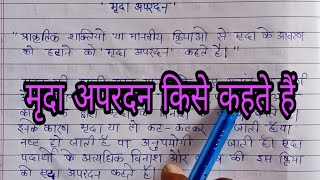 "मृदा अपरदन"
"प्राकृतिक शक्तियों या मानवीय क्रियाओं से मृदा के आवरण
को हटाने को 'मृदा अपरदन' कहते हैं।"
मृदा अपरदन किसे कहते हैं
इनके कारण मृदा या तो कट-कटकर जाती है या
नष्ट हो जाती है या अनुपयोगी जाती है। मृदा
पदार्थों के अत्यधिक विनाश और की इस क्रिया
को मृदा अपरदन कहते हैं।